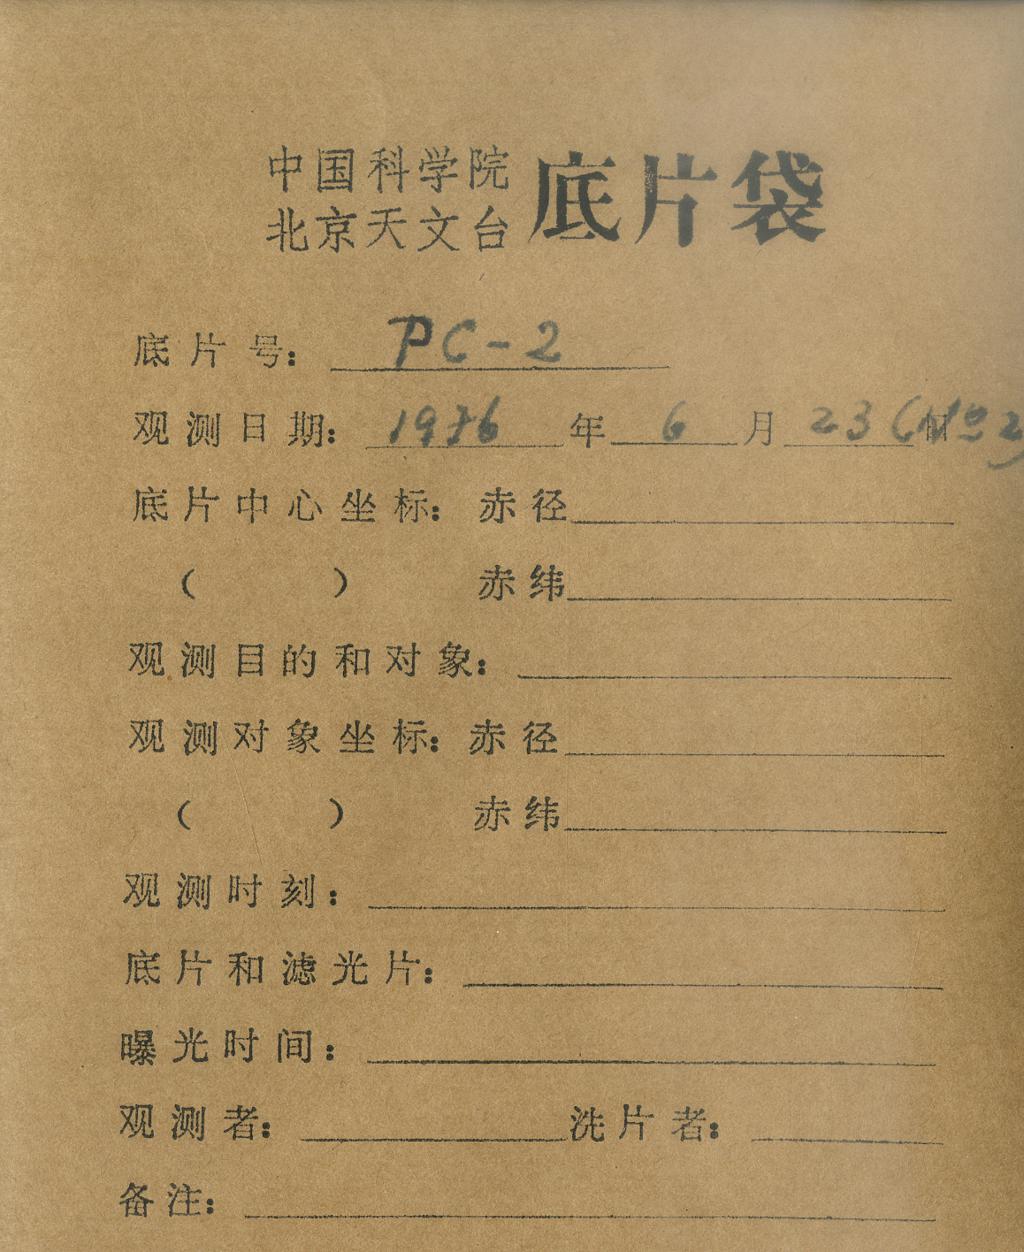 中国科学院
北京天文台
底片袋
底片号: PC-2
观测日期: 1976 年 6 月 23 日 (No2)
底片中心坐标: 赤径
( ) 赤纬
观测目的和对象:
观测对象坐标: 赤径
( ) 赤纬
观测时刻:
底片和滤光片:
曝光时间:
观测者: 洗片者:
备注: